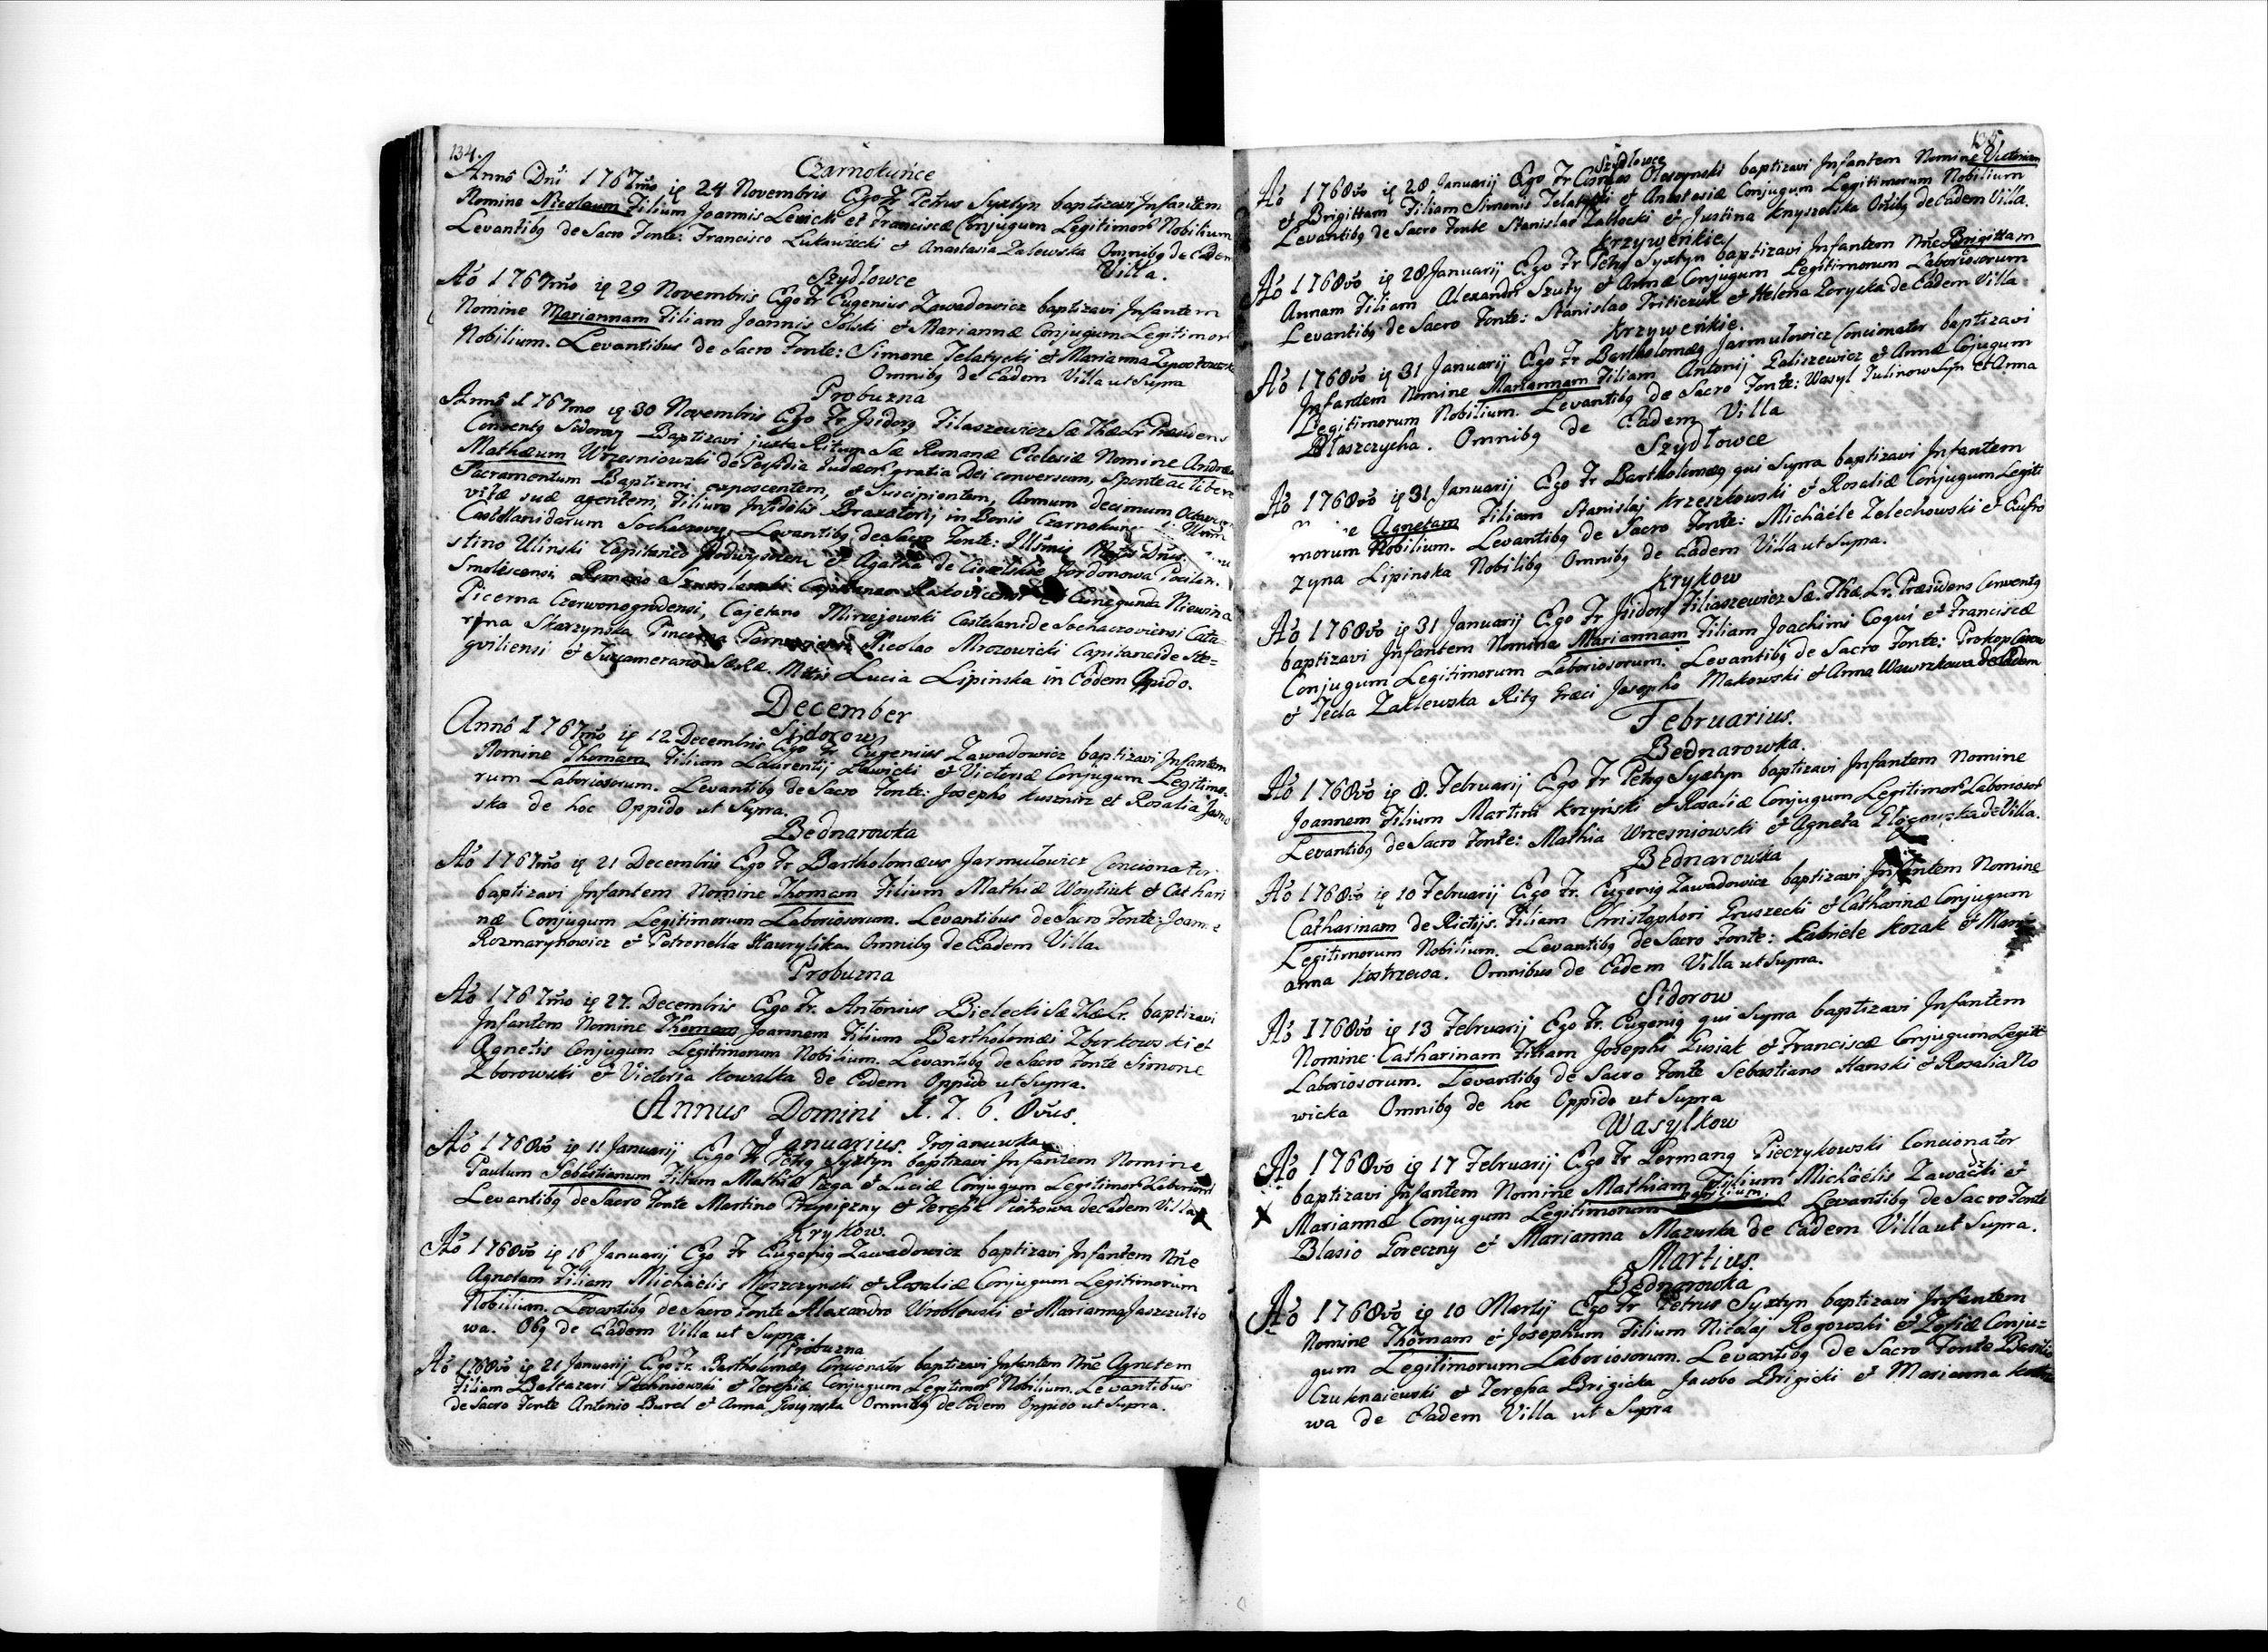 134.
Czarnokuńce
Anno Dni 1767mo ig 24 Novembris Ego Fr Petrus Syxtyn baptizavi Infantem
Nomine Nicolaum Filium Joannis Levicki et Franciscæ Conjugum Legitimor Nobilium
Levantibg de Sacro Fonte: Francisco Lukawiecki et Anastasia Zalewska Omnibg de Eadem
Villa.
Szydłowce
Ao 1767mo ig 29 Novembris Ego Fr Eugenius Zawadowicz baptizavi Infantem
Nomine Mariannam Filiam Joannis Solski et Mariannæ Conjugum Legitimor
Nobilium. Levantibus de Sacro Fonte: Simone Telatycki et Marianna
Omnibg de Eadem Villa ut Supra
Probuzna
Anno 1767mo ig 30 Novembris Ego Fr Isidorg Filaszewicz Sæ Thæ Lr Præsidens
Conventg Sidorov Baptizavi juxta Ritum Sæ Romanæ Ecclesiæ Nomine Andream
Mathæum Wrzesniowski de Perfidia Judæor gratia Dei conversum, Sponte ac libere
Sacramentum Baptizmi exposcentem, et Suscipientem, Annum decimum Octavum
vitæ suæ agentem, Filium Infidelis Braxatorij in Bonis Czarnokun
Castellanidarum Sochaczov Levantibg de Sacro Fonte: Illsmis Dnis
stino Ulinski Capitaneo Podwysocen et Agatha de Cieelskie Jordonowa Pocilla.
Smolescensi, Capitaneo Rakovicensi et Cunegunda Niewina
Picerna Czerwonogrodensi, Cajetano Mirzejowski Castelanide Sochaczoviensi Cata=
rina Skarzynska Pincerna Nicolao Mrozowicki Capitaneide Ste=
gviliensi et Succamerario Sæ Ræ. Mttis Lucia Lipinska in Eodem Opido.
December
Sidorow
Anno 1767mo ig 12 Decembris Ego Fr Eugenius Zawadowicz baptizavi Infantem
Nomine Thomam Filium Laurentij Sawicki et Victoriæ Conjugum Legitimo-
rum Laboriosorum. Levantibg de Sacro Fonte: Josepho Kusznirz et Rosalia
ska de hoc Oppido ut Supra.
Bednarowka
Ao 1767mo ig 21 Decembris Ego Fr Bartholomæus Jarmułowicz Concionator
baptizavi Infantem Nomine Thomam Filium Mathiæ Woytiuk et Cathari
næ Conjugum Legitimorum Laboriosorum. Levantibus de Sacro Fonte: Joanne
Rozmarynowicz et Petronella Hawrylika Omnibg de Eadem Villa.
Probuzna
Ao 1767mo ig 27. Decembris Ego Fr. Antonius Bielecki Sæ Thæ Lr. baptizavi
Infantem Nomine Thomam Joannem Filium Bartholomæi Zborkowski et
Agnetis Conjugum Legitimorum Nobilium. Levantibg de Sacro Fonte Simone
Zborowski et Victoria Kowalka de Eodem Oppido ut Supra.
Annus Domini 1. 7. 6. 8vus.
Januarius. Trojanuwka
Ao 1768vo ig 11 Januarij Ego Fr Petrg Syxtyn baptizavi Infantem Nomine
Paulum Sebastianum Filium Mathiæ Pæga et Luciæ Conjugum Legitimor Laboriosor
Levantibg de Sacro Fonte Martino Przysiezny et Teresia Piotrowa de Eadem Villa
Krykow.
Ao 1768vo ig 16 Januarij Ego Fr Eugenig Zawadowicz baptizavi Infantem Nne
Agnetam Filiam Michaëlis Moszczynski et Rosaliæ Conjugum Legitimorum
Nobilium. Levantibg de Sacro Fonte Alexandro Wroblewski et Marianna Jaszczułto
wa. Obg de Eadem Villa ut Supra
Probuzna
Ao 1768vo ig 21 Januarij Ego Fr. Bartholomæg Concionator baptizavi Infantem Nne Agnetem
Filiam Baltazari Plchniowski et Teresiæ Conjugum Legitimor Nobilium. Levantibus
de Sacro Fonte Antonio Burel et Anna Gosiynska Omnibg de Eodem Oppido ut Supra.
135.
Szydłowce
Ao 1768vo ig 28 Januarij Ego Fr Oleszynski baptizavi Infantem Nomine Victoriam
et Brigittam Filiam Simonis Telatycki et Anastasiæ Conjugum Legitimorum Nobilium
Levantibg de Sacro Fonte Stanislao Zabłocki et Justina Knyszelska Omibg de Eadem Villa.
Krzyweńkie
Ao 1768vo ig 28 Januarij Ego Fr Petrg Syxtyn baptizavi Infantem Nne Brigittam
Annam Filiam Alexandri Szuty et Annæ Conjugum Legitimorum Laboriosorum
Levantibg de Sacro Fonte: Stanislao Friticzuk et Helena Zorycka de Eadem Villa
Krzyweńkie.
Ao 1768vo ig 31 Januarij Ego Fr Bartholomæg Jarmułowicz Concionator baptizavi
Infantem Nomine Mariannam Filiam Antonij Galiszewicz et Annæ Cojugum
Legitimorum Nobilium. Levantibg de Sacro Fonte: Wasyl Julinow Syn et Anna
Błaszczycha. Omnibg de Eadem Villa
Szydłowce
Ao 1768vo ig 31 Januarij Ego Fr Bartholomæg qui Supra baptizavi Infantem
Agnetam Filiam Stanislaj Krzeszkowski et Rosaliæ Conjugum Legiti
morum Nobilium. Levantibg de Sacro Fonte: Michaële Zelechowski et Eufro
zyna Lipinska Nobilibg Omnibg de Eadem Villa ut Supra.
Krykow
Ao 1768vo ig 31 Januarij Ego Fr Isidorg Filiaszewicz Sæ. Thæ Lr. Præsidens Conventg
baptizavi Infantem Nomine Mariannam Filiam Joachimi Coqui et Franciscæ
Conjugum Legitimorum Laboriosorum. Levantibg de Sacro Fonte: Prokop
et Tecla Zaklewska Ritg Græci Josepho Makowski et Anna Wawrzkowa de Eadem
Februarius.
Bednarowka.
Ao 1768vo ig 8. Februarij Ego Fr Petrg Syxtyn baptizavi Infantem Nomine
Joannem Filium Martini Korzyński et Rosaliæ Conjugum Legitimor Laboriosor
Levantibg de Sacro Fonte: Mathia Wrzesniowski et Agneta Głogowska de Villa.
Bednarowka
Ao 1768vo ig 10 Februarij Ego Fr. Eugenig Zawadowicz baptizavi Infantem Nomine
Catharinam de Rictijs. Filiam Christophori Gruszecki et Catharinæ Conjugum
Legitimorum Nobilium. Levantibg de Sacro Fonte: Gabriele Kozak et Mari
anna Kostrzewa. Omnibus de Eadem Villa ut Supra.
Sidorow
Ao 1768vo ig 13 Februarij Ego Fr. Eugenig qui Supra baptizavi Infantem
Nomine Catharinam Filiam Josephi Gusiak et Franciscæ Conjugum Legiti
Laboriosorum. Levantibg de Sacro Fonte Sebastiano Hanski et Rosalia No
wicka Omnibg de hoc Oppido ut Supra
Wasylkow
Ao 1768vo ig 17 Februarij Ego Fr Germang Pieczykowski Concionator
baptizavi Infantem Nomine Mathiam Filium Michaëlis Zawacki et
Mariannæ Conjugum Legitimorum Nobilium. Levantibg de Sacro Fonte
Blasio Goreczny et Marianna Mazurka de Eadem Villa ut Supra.
Martius.
Bednarowka
Ao 1768vo ig 10 Martij Ego Fr Petrus Syxtyn baptizavi Infantem
Nomine Thomam et Josephum Filium Nicolaj Rogowski et Zofiæ Conju=
gum Legitimorum Laboriosorum. Levantibg de Sacro Fonte Basilio
Czuknaiewski et Teresia Brigicka Jacobo Brigicki et Marianna
wa de Eadem Villa ut Supra